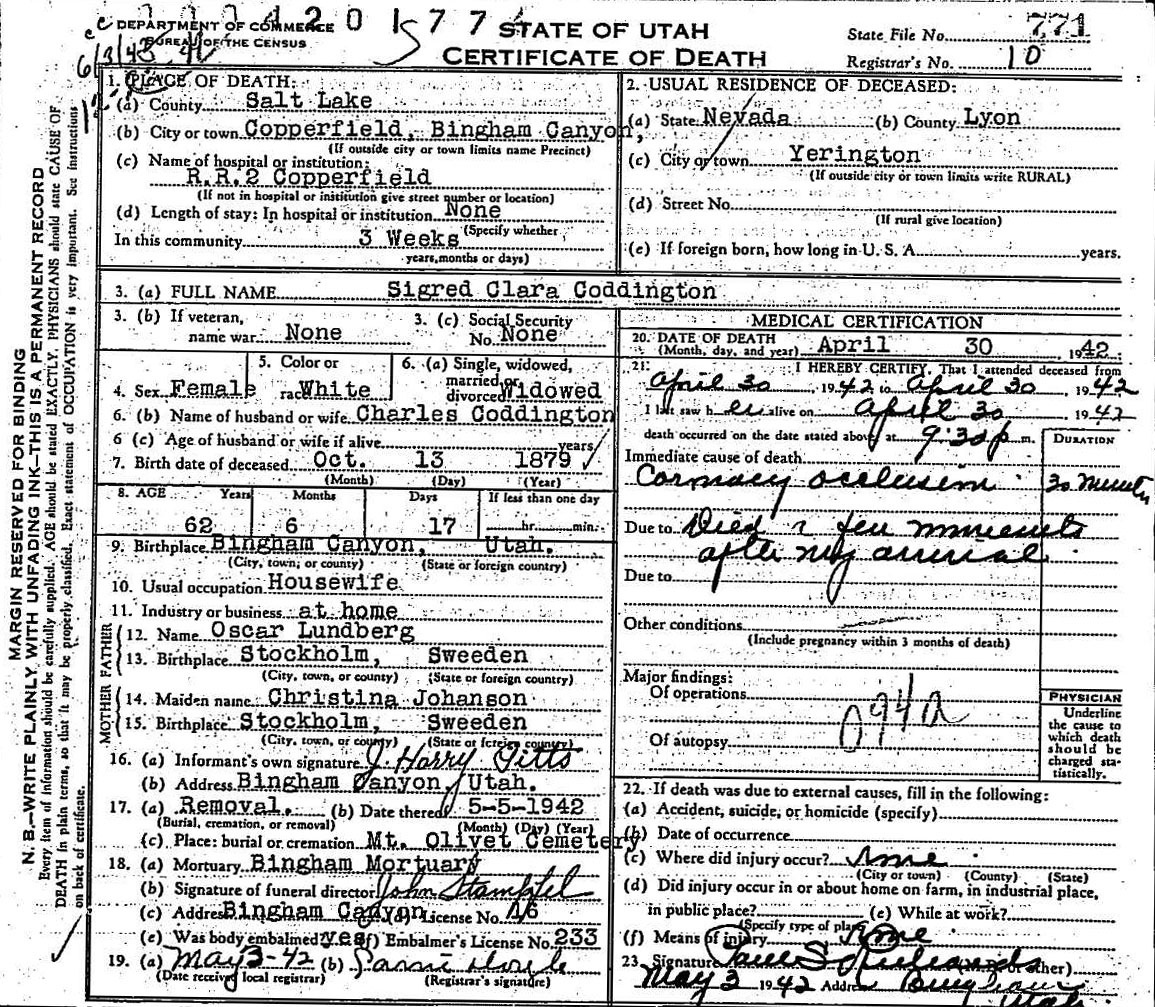 DEPARTMENT OF COMMERCE
BUREAU OF THE CENSUS
6/3/43
STATE OF UTAH
CERTIFICATE OF DEATH
State File No. 771
Registrar's No. 10
MARGIN RESERVED FOR BINDING
N. B.—WRITE PLAINLY WITH UNFADING INK—THIS IS A PERMANENT RECORD
Every item of information should be carefully supplied. AGE should be stated EXACTLY. PHYSICIANS should state CAUSE OF
DEATH in plain terms, so that it may be properly classified. Exact statement of OCCUPATION is very important. See instructions
on back of certificate.
1. PLACE OF DEATH:
(a) County Salt Lake
(b) City or town Copperfield, Bingham Canyon,
(If outside city or town limits name Precinct)
(c) Name of hospital or institution:
R.R.2 Copperfield
(If not in hospital or institution give street number or location)
(d) Length of stay: In hospital or institution None
(Specify whether
In this community 3 Weeks
years, months or days)
2. USUAL RESIDENCE OF DECEASED:
(a) State Nevada (b) County Lyon
(c) City or town Yerington
(If outside city or town limits write RURAL)
(d) Street No.
(If rural give location)
(e) If foreign born, how long in U. S. A years.
3. (a) FULL NAME Sigred Clara Coddington
3. (b) If veteran, name war None
3. (c) Social Security No. None
4. Sex Female
5. Color or race White
6. (a) Single, widowed, married or divorced Widowed
6. (b) Name of husband or wife Charles Coddington
6 (c) Age of husband or wife if alive years
7. Birth date of deceased Oct. 13 1879
(Month) (Day) (Year)
8. AGE Years Months Days If less than one day
62 6 17 hr. min.
9. Birthplace Bingham Canyon, Utah.
(City, town, or county) (State or foreign country)
10. Usual occupation Housewife
11. Industry or business at home
FATHER
12. Name Oscar Lundberg
13. Birthplace Stockholm, Sweeden
(City, town, or county) (State or foreign country)
MOTHER
14. Maiden name Christina Johanson
15. Birthplace Stockholm, Sweeden
(City, town, or county) (State or foreign country)
16. (a) Informant's own signature J. Harry Pitts
(b) Address Bingham Canyon, Utah.
17. (a) Removal. (b) Date thereof 5-5-1942
(Burial, cremation, or removal) (Month) (Day) (Year)
(c) Place: burial or cremation Mt. Olivet Cemetery
18. (a) Mortuary Bingham Mortuary
(b) Signature of funeral director John Stampfel
(c) Address Bingham Canyon (d) License No. A6
(e) Was body embalmed? yes (f) Embalmer's License No. 233
19. (a) May 3-42 (b)
(Date received local registrar) (Registrar's signature)
MEDICAL CERTIFICATION
20. DATE OF DEATH
(Month, day, and year) April 30, 1942.
21. I HEREBY CERTIFY, That I attended deceased from
April 30, 1942 to April 30, 1942
I last saw her alive on April 30, 1942
death occurred on the date stated above at 9:30 p. m.
DURATION
Immediate cause of death
Coronary occlusion 30 minutes
Due to Died a few minutes
after my arrival
Due to
Other conditions
(Include pregnancy within 3 months of death)
Major findings:
Of operations
094a
Of autopsy
PHYSICIAN
Underline
the cause to
which death
should be
charged sta-
tistically.
22. If death was due to external causes, fill in the following:
(a) Accident, suicide, or homicide (specify)
(b) Date of occurrence
(c) Where did injury occur? None
(City or town) (County) (State)
(d) Did injury occur in or about home on farm, in industrial place,
in public place? (e) While at work?
(Specify type of place)
(f) Means of injury None
23. Signature Paul S Richards (M.D. or other)
May 3 1942 Address Bingham
Utah